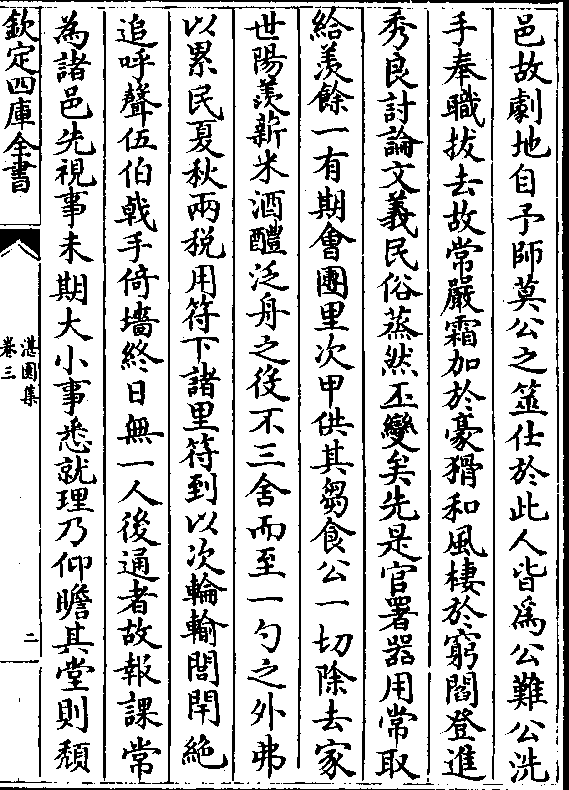 邑故劇地自予師莫公之筮仕於此人皆為公難公洗
手奉職拔去故常嚴霜加於豪猾和風棲於窮閻登進
秀良討論文義民俗蒸然丕變矣先是官署器用常取
給羨餘一有期會團里次甲供其芻食公一切除去家
世陽羨薪米酒醴泛舟之役不三舍而至一勺之外弗
以累民夏秋兩税用符下諸里符到以次輪輸閭閈絶
追呼聲伍伯戟手倚墻終日無一人後逋者故報課常
為諸邑先視事未期大小事悉就理乃仰瞻其堂則頽
欽定四庫全書
湛園集
卷三
二